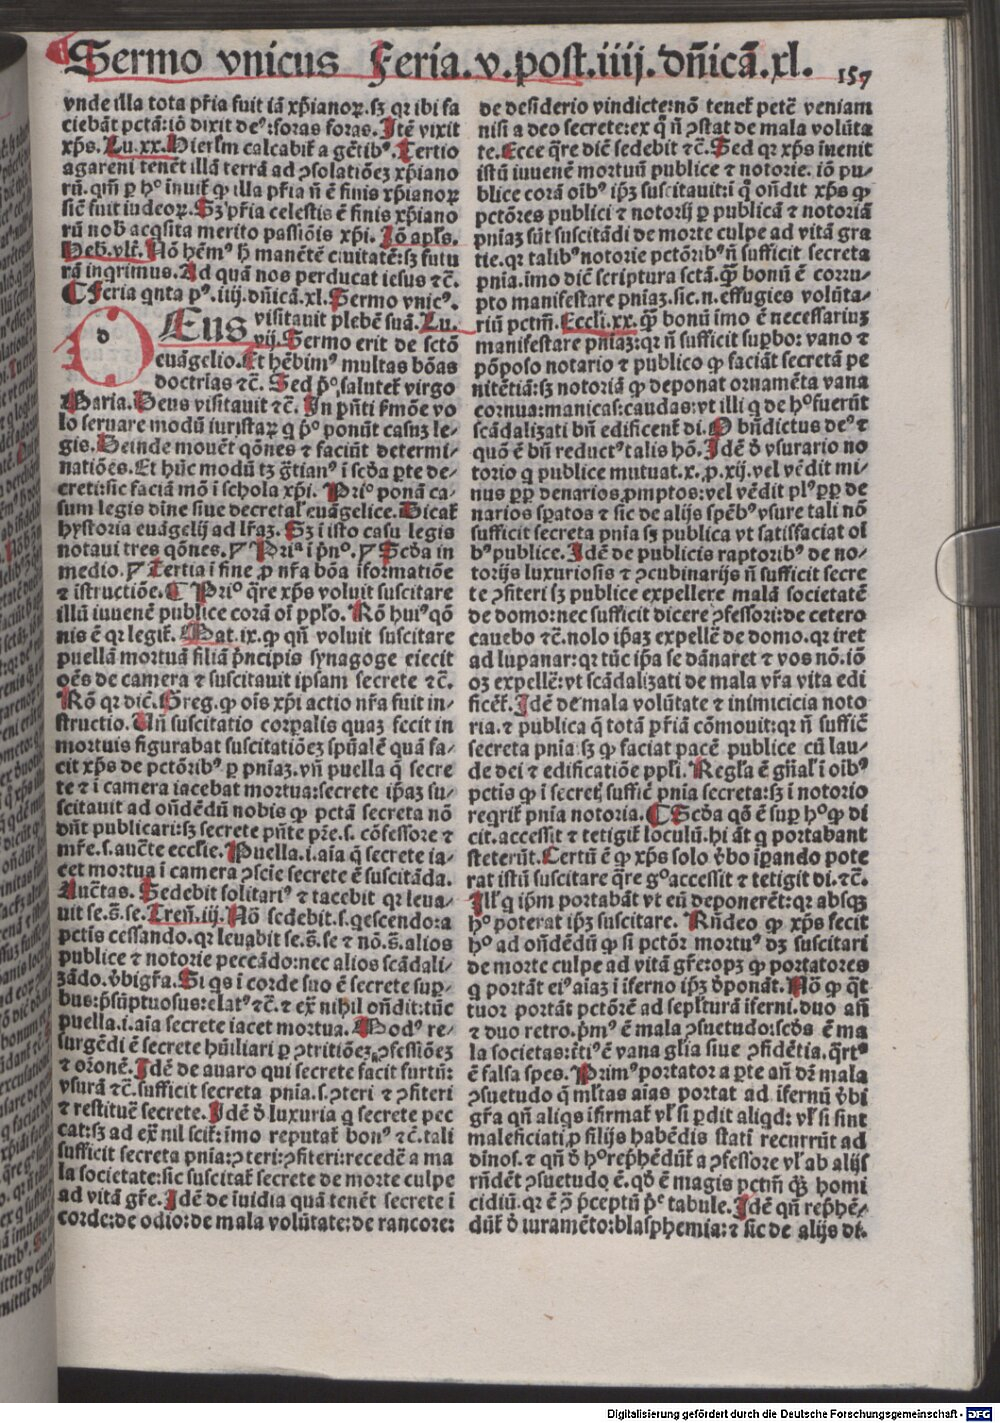 Sermo vnicus Feria.v.post.iiij.dñicã.xl. 157
vnde illa tota pr̃ia fuit iã xp̃ianoꝝ.sꝫ qꝛ ibi fa
ciebãt pctã:iõ dixit deꝰ:foras foras.Itẽ vixit
xp̃s.Lu.xx.Hierłm calcabiť a gẽtibꝰ.Tertio
agareni tenẽt illã terrã ad ꝯsolatiõeꝫ xp̃iano
rũ.qm̃ ꝑ hº ĩnuiť ꝙ illa pr̃ia ñ ẽ finis xp̃ianoꝝ
sič fuit iudeoꝝ.Sꝫ pr̃ia celestis ẽ finis xp̃iano
rũ nob̃ acq̃sita merito passiõis xp̃i.Iõ apl̃s.
Heb.vlt̃.Nõ hẽmꝰ h̃ manẽtẽ ciuitatẽ:sꝫ futu
rã inqrimus.Ad quã nos perducat iesus ⁊č.
¶Feria qnta pꝰ.iiij.dñicã.xl.Sermo vnicꝰ.
DEus visitauit plebẽ suã.Lu.
vij.Sermo erit de sctõ
euãgelio.Et hẽbimꝰ multas bõas
doctrĩas ⁊č.Sed pº.saluteť virgo
Maria.Deus visitauit ⁊č.In pñti sermõe vo
lo seruare modũ iuristaꝝ q pº ponũt casuꝫ le⸗
gis.Deinde mouẽt qõnes ⁊ faciũt determi⸗
natiões.Et hũc modũ tꝫ gr̃tianꝰ ĩ scďa ꝑte de⸗
creti:sic faciã mõ ĩ schola xp̃i.Priº ponã ca⸗
sum legis dĩne siue decretaľ euãgelice.Dicať
hystoria euãgelij ad lr̃aꝫ.Sꝫ ĩ isto casu legis
notaui tres qõnes.Priª ĩ pnº.Scďa in
medio.Tertia ĩ fine ꝓ nr̃a bõa ĩformatiõe
⁊ ĩstructiõe.¶Priº q̃re xp̃s voluit suscitare
illũ iuuenẽ publice corã oĩ ppl̃o.Rõ huiꝰ qõ
nis ẽ qꝛ legiť.Mat.ix.ꝙ qñ voluit suscitare
puellã mortuã filiã p̃ncipis synagoge eiecit
oẽs de camera ⁊ suscitauit ipsam secrete ⁊č.
Rõ qꝛ dič.Greg.ꝙ oĩs xp̃i actio nr̃a fuit in⸗
structio.Vñ suscitatio corꝑalis quaꝫ fecit in
mortuis figurabat suscitatiõeꝫ spũalẽ quã fa⸗
cit xp̃s de pctõribꝰ ꝑ pnĩaꝫ.vñ puella q̃ secre
te ⁊ ĩ camera iacebat mortua:secrete ip̃aꝫ su⸗
scitauit ad oñdẽdũ nobis ꝙ pctã secreta nõ
dñt publicari:sꝫ secrete pñte pr̃e.s.cõfessore ⁊
mr̃e.s.auc̃te eccl̃ie.Puella.i.aĩa q̃ secrete ia⸗
cet mortua ĩ camera ꝯscĩe secrete ẽ suscitãda.
Auc̃tas.Sedebit solitariꝰ ⁊ tacebit qꝛ leua⸗
uit se.s̃.se.Tren̄.iij.Nõ sedebit.s.qescendo:a
pctis cessando.qꝛ leuabit se.s̃.se ⁊ nõ.s̃.alios
publice ⁊ notorie peccãdo:nec alios scãdali⸗
zãdo.ďbigr̃a.Si qs ĩ corde suo ẽ secrete sup⸗
bus:p̃sũptuosus:elatꝰ ⁊č.⁊ ex̃ nihil oñdit:tũc
puella.i.aĩa secrete iacet mortua.Modꝰ re⸗
surgẽdi ẽ secrete hũiliari ꝑ ꝯtritiõeꝫ ꝯfessiõeꝫ
⁊ or̃onẽ.Idẽ de auaro qui secrete facit furtũ:
vsurã ⁊č.sufficit secreta pnĩa.s.ꝯteri ⁊ ꝯfiteri
⁊ restituẽ secrete.Idẽ ď luxuria q secrete pec
cat:sꝫ ad ex̃ nil sciť:ĩmo reputať bonꝰ ⁊č.tali
sufficit secreta pnĩa:ꝯteri:ꝯfiteri:recedẽ a ma
la societate:sic suscitať secrete de morte culpe
ad vitã gr̃e.Idẽ de ĩuidia quã tenẽt secrete ĩ
corde:de odio:de mala volũtate:de rancore:
de desiderio vindicte:nõ teneť petẽ veniam
nisi a deo secrete:ex q̃ ñ ꝯstat de mala volũta
te.Ecce q̃re dič sedebit ⁊č.Sed qꝛ xp̃s ĩnenit
istũ iuuenẽ mortuũ publice ⁊ notorie.iõ pu⸗
blice corã oĩbꝰ ip̃ꝫ suscitauit:ĩ q̃ oñdit xp̃s ꝙ
pctõres publici ⁊ notorij ꝑ publicã ⁊ notoriã
pnĩaꝫ sũt suscitãdi de morte culpe ad vitã gra
tie.qꝛ talibꝰ notorie pctõribꝰ ñ sufficit secreta
pnĩa.ĩmo dič scriptura sctã.ꝙ̃ bonũ ẽ corru⸗
pto manifestare pnĩaꝫ.sic.n.effugies volũta⸗
riũ pctm̃.Eccli.xx.ꝙ̃ bonũ ĩmo ẽ necessariuꝫ
manifestare pnĩaꝫ:qꝛ ñ sufficit supbo:vano ⁊
põposo notario ⁊ publico ꝙ faciãt secretã pe
nitẽtiã:sꝫ notoriã ꝙ deponat ornamẽta vana
cornua:manicas:caudas:vt illi q de hº fuerũt
scãdalizati bñ edificenť di.O bñdictus deꝰ ⁊
quõ ẽ bñ reductꝰ talis hõ.Idẽ ď vsurario no
torio q publice mutuat.x.ꝓ.xij.vel vẽdit mi⸗
nus ꝓꝑ denarios ꝓmptos:vel vẽdit plꝰ ꝓꝑ de
narios spatos ⁊ sic de alijs spẽbꝰ vsure tali nõ
sufficit secreta pnĩa sꝫ publica vt satisfaciat oĩ
bꝰ publice.Idẽ de publicis raptoribꝰ de no⸗
torijs luxuriosis ⁊ ꝯcubinarijs ñ sufficit secre
te ꝯfiteri sꝫ publice expellere malã societatẽ
de domo:nec sufficit dicere ꝯfessori:de cetero
cauebo ⁊č.nolo ip̃aꝫ expellẽ de domo.qꝛ iret
ad lupanar:qꝛ tũc ip̃a se dãnaret ⁊ vos nõ.iõ
oꝫ expellẽ:vt scãdalizati de mala vr̃a vita edi
ficẽť.Idẽ de mala volũtate ⁊ inimicicia noto
ria.⁊ publica q̃ totã pr̃iã cõmouit:qꝛ ñ suffič
secreta pnĩa sꝫ ꝙ faciat pacẽ publice cũ lau⸗
de dei ⁊ edificatiõe ppl̃i.Regl̃a ẽ gñal̃ ĩ oĩbꝰ
pctis ꝙ ĩ secretꝭ suffič pnĩa secreta:sꝫ ĩ notorio
reqriť pnĩa notoria.¶Scďa qõ ẽ sup hº ꝙ di
cit.accessit ⁊ tetigit loculũ.hi aũt q portabant
steterũt.Certũ ẽ ꝙ xp̃s solo ďbo ĩꝑando pote
rat istũ suscitare q̃re gº accessit ⁊ tetigit di.⁊č.
Illꝭ q ip̃m portabãt vt eũ deponerẽt:qꝛ absqꝫ
hº poterat ip̃ꝫ suscitare.Rñdeo ꝙ xp̃s fecit
hº ad oñdẽdũ ꝙ si pctõr mortuꝰ dꝫ suscitari
de morte culpe ad vitã gr̃e:opꝫ ꝙ portatores
q portãt eiꝰ aĩaꝫ ĩ ĩferno ip̃ꝫ ďponãt.Nõ ꝙ q̃t
tuor portãt pctõrẽ ad sepl̃turã ĩferni.duo añ
⁊ duo retro.pmꝰ ẽ mala ꝯsuetudo:scďs ẽ ma
la societas:t̃tiꝰ ẽ vana gl̃ia siue ꝯfidẽtia.q̃rtꝰ
ẽ falsa spes.Primꝰ portator a ꝑte añ dꝛ mala
ꝯsuetudo q̃ ml̃tas aĩas portat ad ĩfernũ ďbi
gr̃a qñ aliqs ĩfirmať vl̃ si ꝑdit aliqd:vl̃ si sint
maleficiati,ꝓ filijs habẽdis stati recurrũt ad
dĩnos.⁊ qñ ď hº rep̃hẽdũť a ꝯfessore vl̃ ab alijs
rñdẽt ꝯsuetudo ẽ.qď ẽ magis pctm̃ ꝙ̃ homi
cidiũ.qꝛ ẽ ꝯ p̃ceptũ pẽ tabule.Idẽ qñ rep̃hẽ⸗
dũť ď iuramẽto:blasphemia:⁊ sic de alijs di.
Digitalisierung gefördert durch die Deutsche Forschungsgemeinschaft - DFG